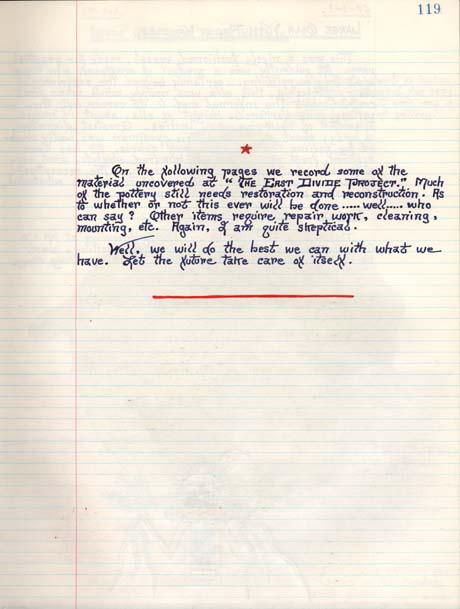 119
On the following pages we record some of the
material uncovered at "THE EAST DIVIDE PROJECT." Much
of the pottery still needs restoration and reconstruction. As
to whether or not this ever will be done.....well.....who
can say? Other items require repair work, cleaning,
mounting, etc. Again, I am quite skeptical.
Well, we will do the best we can with what we
have. Let the future take care of itself.